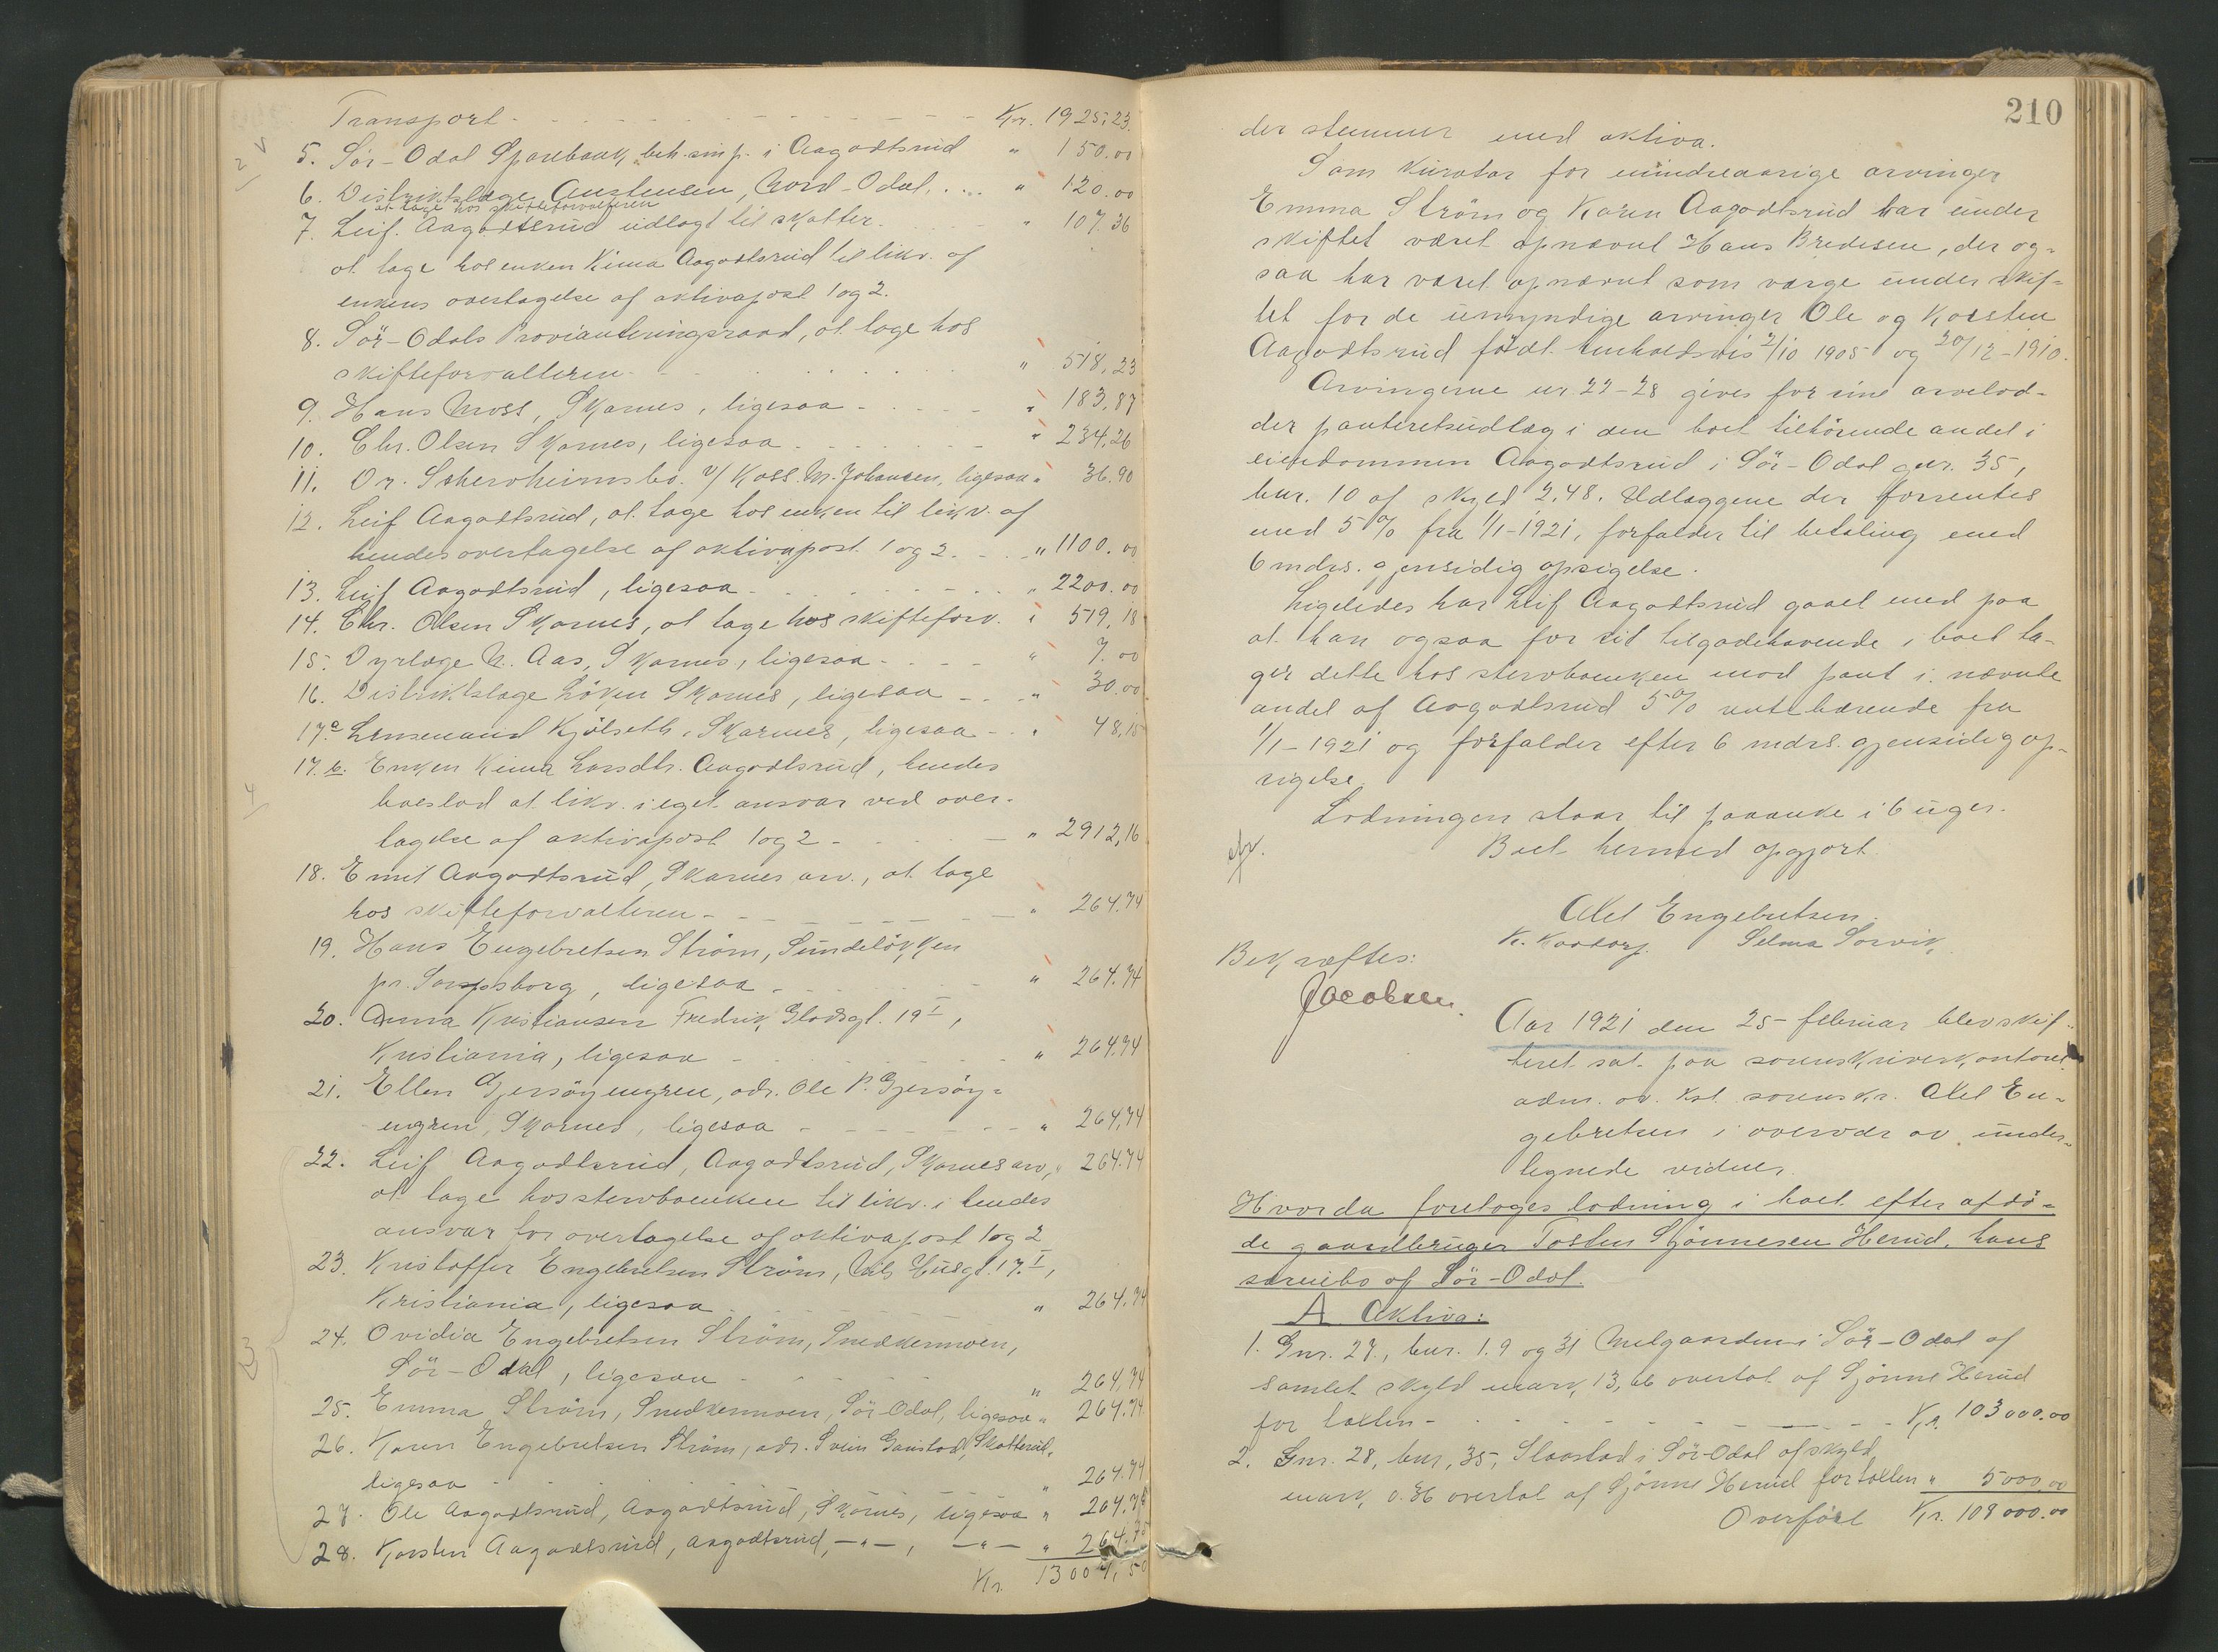 Transport - - - Kr. 1925,23.
5. Sör-Odal Sparebank, beh. sinp. i Aagodtsrud " 150.00
6. Distriktslæge Austensen, Nord-Odal, .... " 120.00
at tage hos skifteforvalteren
7. Leif Aagodtsrud utlagt til skatter. " 107.36
at tage hos enken Kima Aagodtsrud til likv. af
enkens overtagelse af aktivapost 1 og 2.
8. Sör-Odals Provianteringsraad, at tage hos
skifteforvalteren - " 518,23
9. Hans Moss, Skarnes, ligesaa - " 183,87
10. Chr. Olsen Skarnes, ligesaa - " 234,26
11. Dr. bo. v/ Kass. M. Johansen, ligesaa " 36.90
12. Leif Aagodtsrud, at tage hos enken til likv. af
hendes overtagelse af aktivapost 1 og 2. - " 1100.00
13. Leif Aagodtsrud, ligesaa - " 2200.00
14. Chr. Olsen Skarnes, at tage hos skifteforv. " 519,18
15. Dyrlæge N. Aas, Skarnes, ligesaa - " 7.00
16. Distriktslæge Löken Skarnes, ligesaa - " 30.00
17a Lensmand Kjölseth, Skarnes, ligesaa - " 48,15
17.b. Enken Kima Larsdtr. Aagodtsrud, hendes
boeslod at likv. i eget ansvar ved over-
tagelse af aktivapost 1 og 2 - " 2912,16
18. Emil Aagodtsrud, Skarnes arv., at tage
hos skifteforvalteren - " 264.74
19. Hans Engebretsen Ström, Sundelökken
pr. Sarpsborg, ligesaa - " 264.74
20. Anna Kristiansen Fredrik Gladsgt. 19 I,
Kristiania, ligesaa - " 264.74
21. Ellen Gjersöyengren, adr. Ole P. Gjersöy-
engren, Skarnes, ligesaa - " 264,74
22. Leif Aagodtsrud, Aagodtsrud, Skarnes arv, " 264.74
at tage hos stervboenken til likv. i hendes
ansvar for overtagelse af aktivapost 1 og 2
23. Kristoffer Engebretsen Ström, Nils Husgt. 17. I,
Kristiania, ligesaa " 264.74
24. Ovidia Engebretsen Ström, Smedkermoen,
Sör-Odal, ligesaa - " 264,74
25. Emma Ström, Smedkermoen, Sör-Odal, ligesaa " 264.74
26. Karen Engebretsen Ström, adr. Svein
ligesaa - " 264.74
27. Ole Aagodtsrud, Aagodtsrud, Skarnes, ligesaa " 264.74
28. Karsten Aagodtsrud, Aagodtsrud, -"-, -"- " 264.75
Kr. 13004,50
210
der stemmer med aktiva.
Som kurator for mindreaarige arvinger
Emma Ström og Karen Aagodtsrud har under
skiftet været opnævnt Hans Bredesen, der og-
saa har været opnævnt som værge under skif-
tet for de umyndige arvinger Ole og Karsten
Aagodtsrud födt henholdsvis 2/10 1905 og 20/12-1910.
Arvingerne nr 22-28 gives for sine arvelod-
der panteretsudlæg i den boet tilhörende andel i
eiendommen Aagodtsrud i Sör-Odal gnr. 35,
bnr. 10 af skyld 2,48. Udlæggene der forrentes
med 5% fra 1/1-1921, forfalder til betaling med
6 mdrs. gjensidig opsigelse.
Ligeledes har Leif Aagodtsrud gaaet med paa
at han ogsaa for sit tilgodehavende i boet ta-
ger dette hos stervboenken mod pant i nævnte
andel af Aagodtsrud 5% rentebærende fra
1/1-1921 og forfalder efter 6 mdrs. gjensidig op-
sigelse.
Lodningen staar til paaanke i 6 uger.
Boet hermed opgjort.
Axel Engebretsen.
K. Kaadorp. Selma Sorvik
Bekræftes:
Jacobsen.
Aar 1921 den 25-februar blev skif-
teret sat paa sorenskriverkontoret
adm. av. kst. sorenskr. Axel En-
gebretsen i overvær av under-
tegnede vidner.
Hvorda foretoges lodning i boet efter afdö-
de gaardbruger Tosten Sjönnesen Herud, hans
særeiebo af Sör-Odal.
A Aktiva:
1. Gnr. 27, bnr. 1.9 og 31 Melgaarden i Sör-Odal af
samlet skyld mark 13,66 overtat af Sjönne Herud
for taxten - Kr. 103000.00
2. Gnr. 28, bnr. 35, Slaastad i Sör-Odal af skyld
mark 0.36 overtat af Sjönne Herud for taxten " 5000,00
Overfört Kr. 108000.00